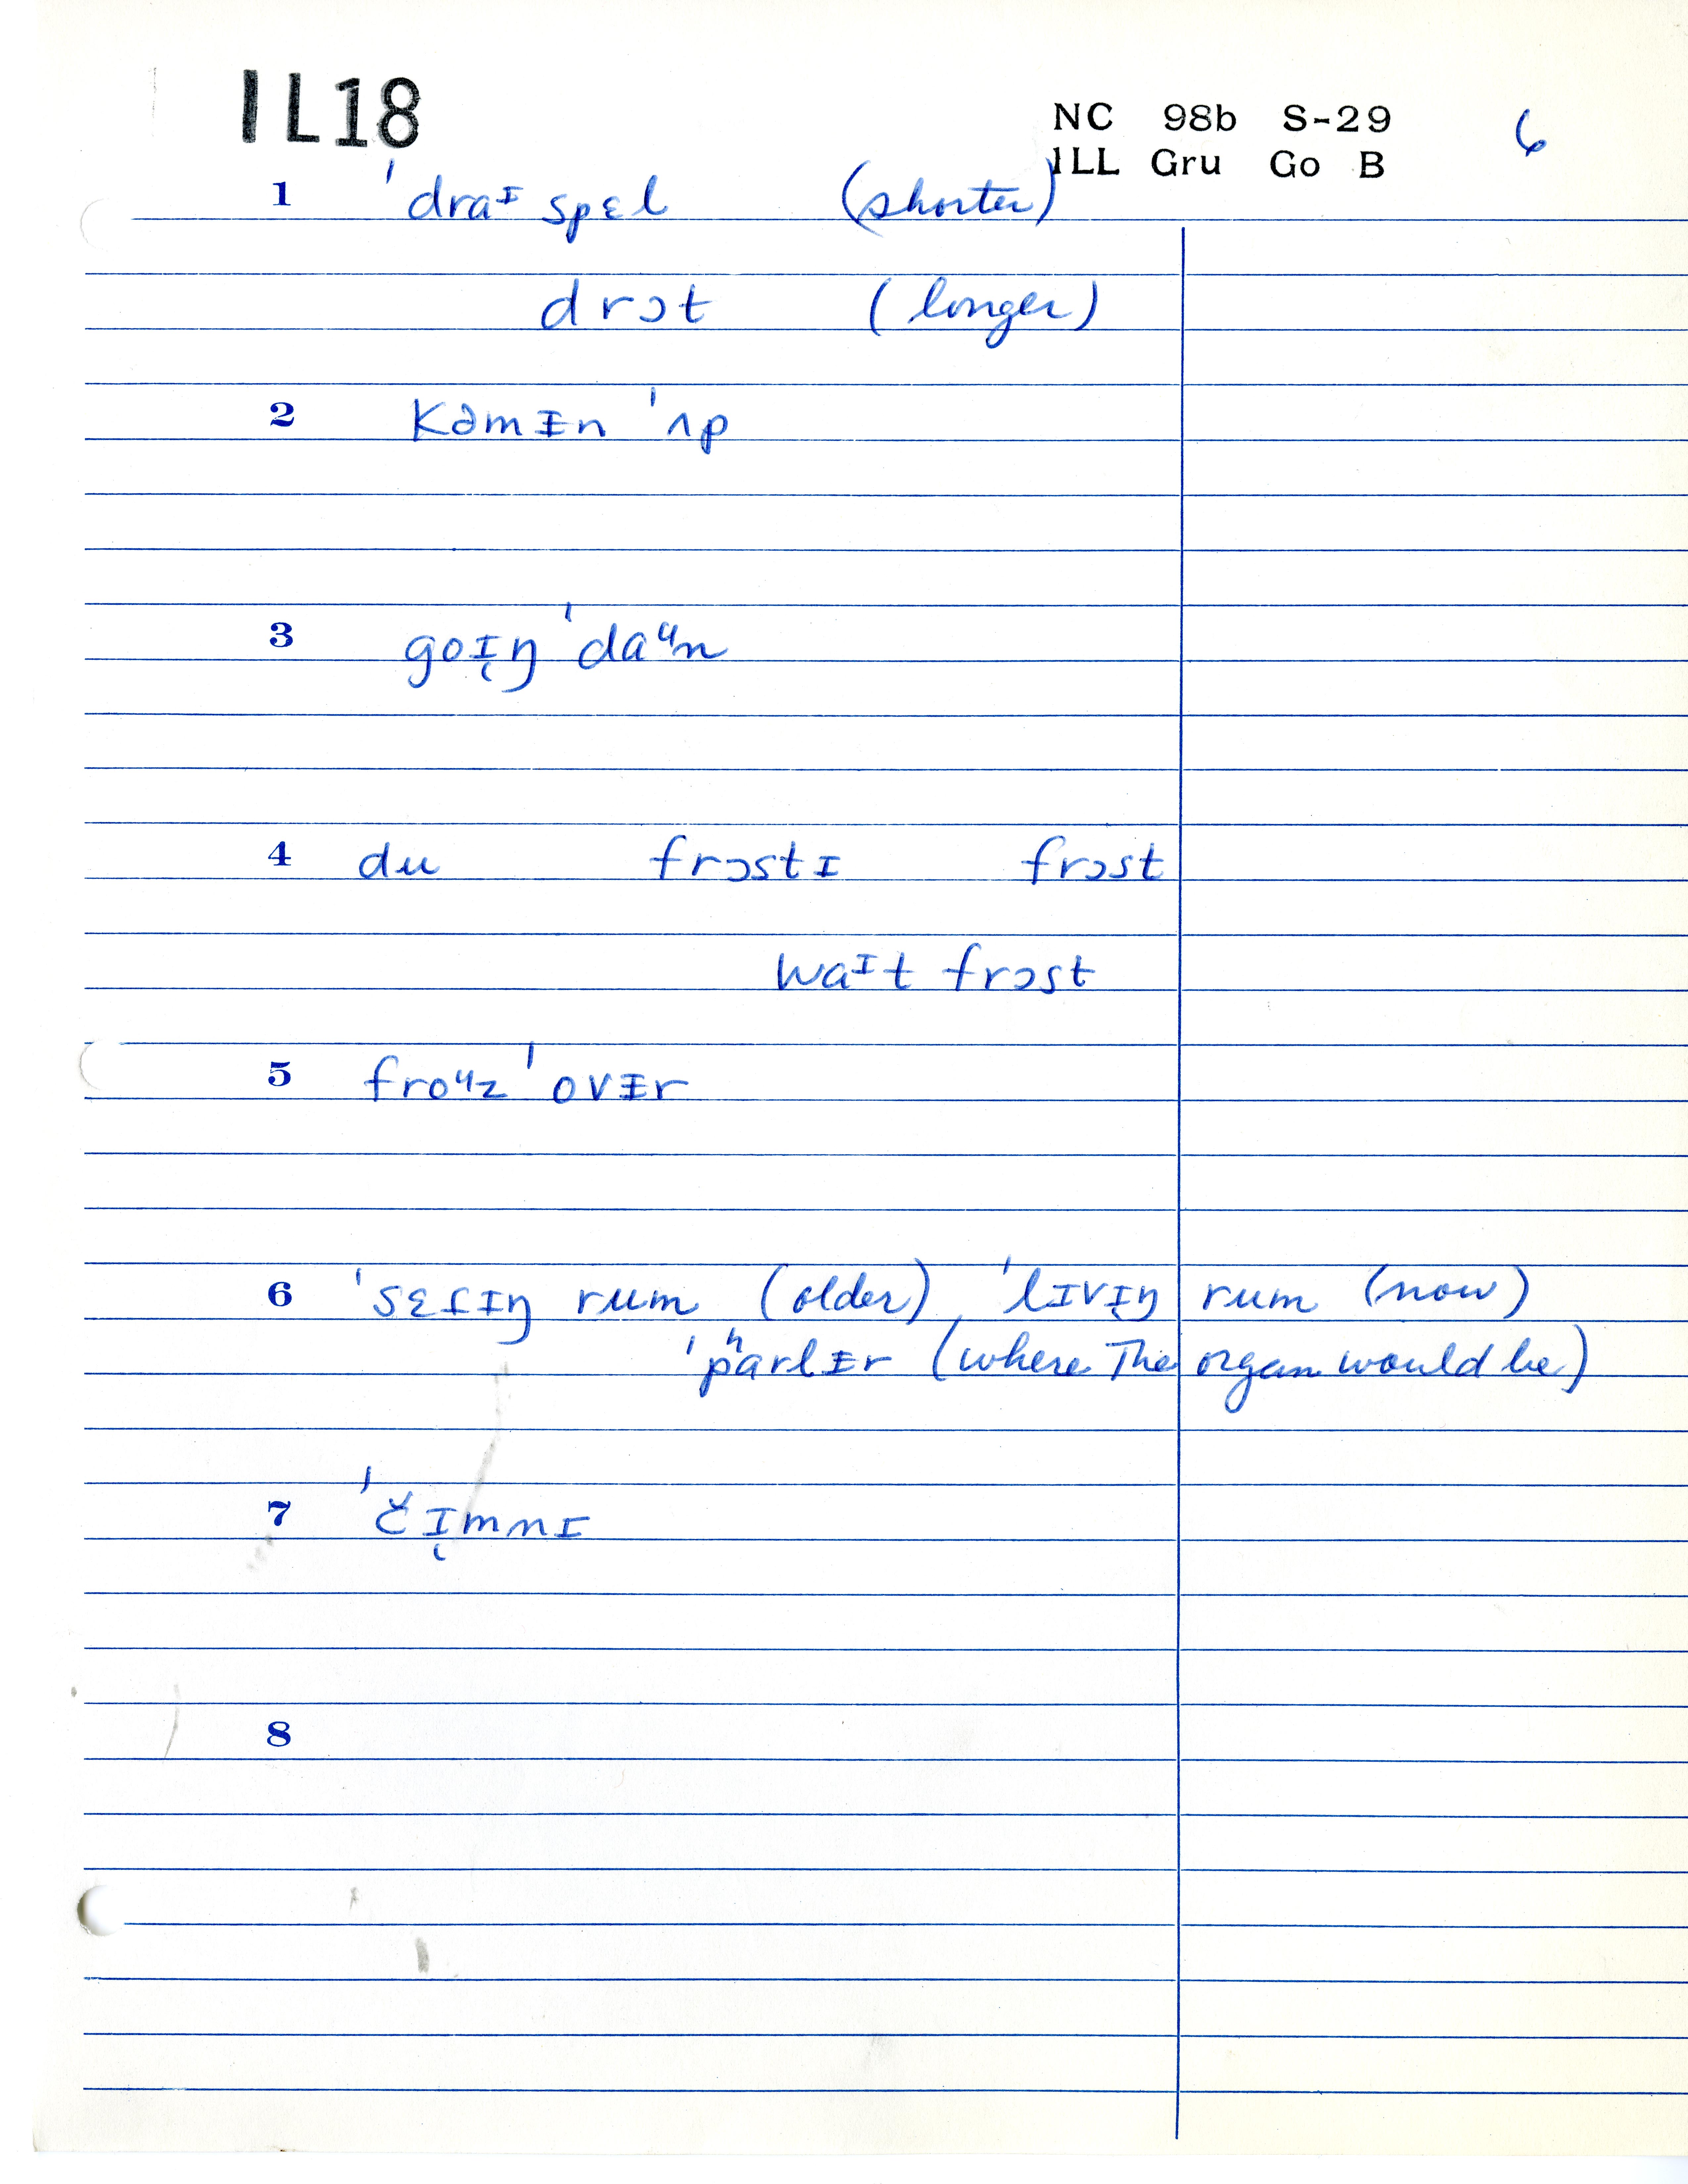 IL18
NC 98b S-29 6
ILL Gru Go B
1 ˈdraᶦ spɛl (shorter)
drɔt (longer)
2 Kəmᵻn ˈʌp
3 goɪ̜ŋ ˈdaᶸn
4 du frɔstɪ frɔst
waᶦt frɔst
5 froᶸz ˈovᵻr
6 ˈsɛɾɪŋ rum (older) ˈlɪvɪ̜ŋ rum (now)
ˈpʰarlᵻr (where the organ would be)
7 ˈčɪ̜mnɪ
8